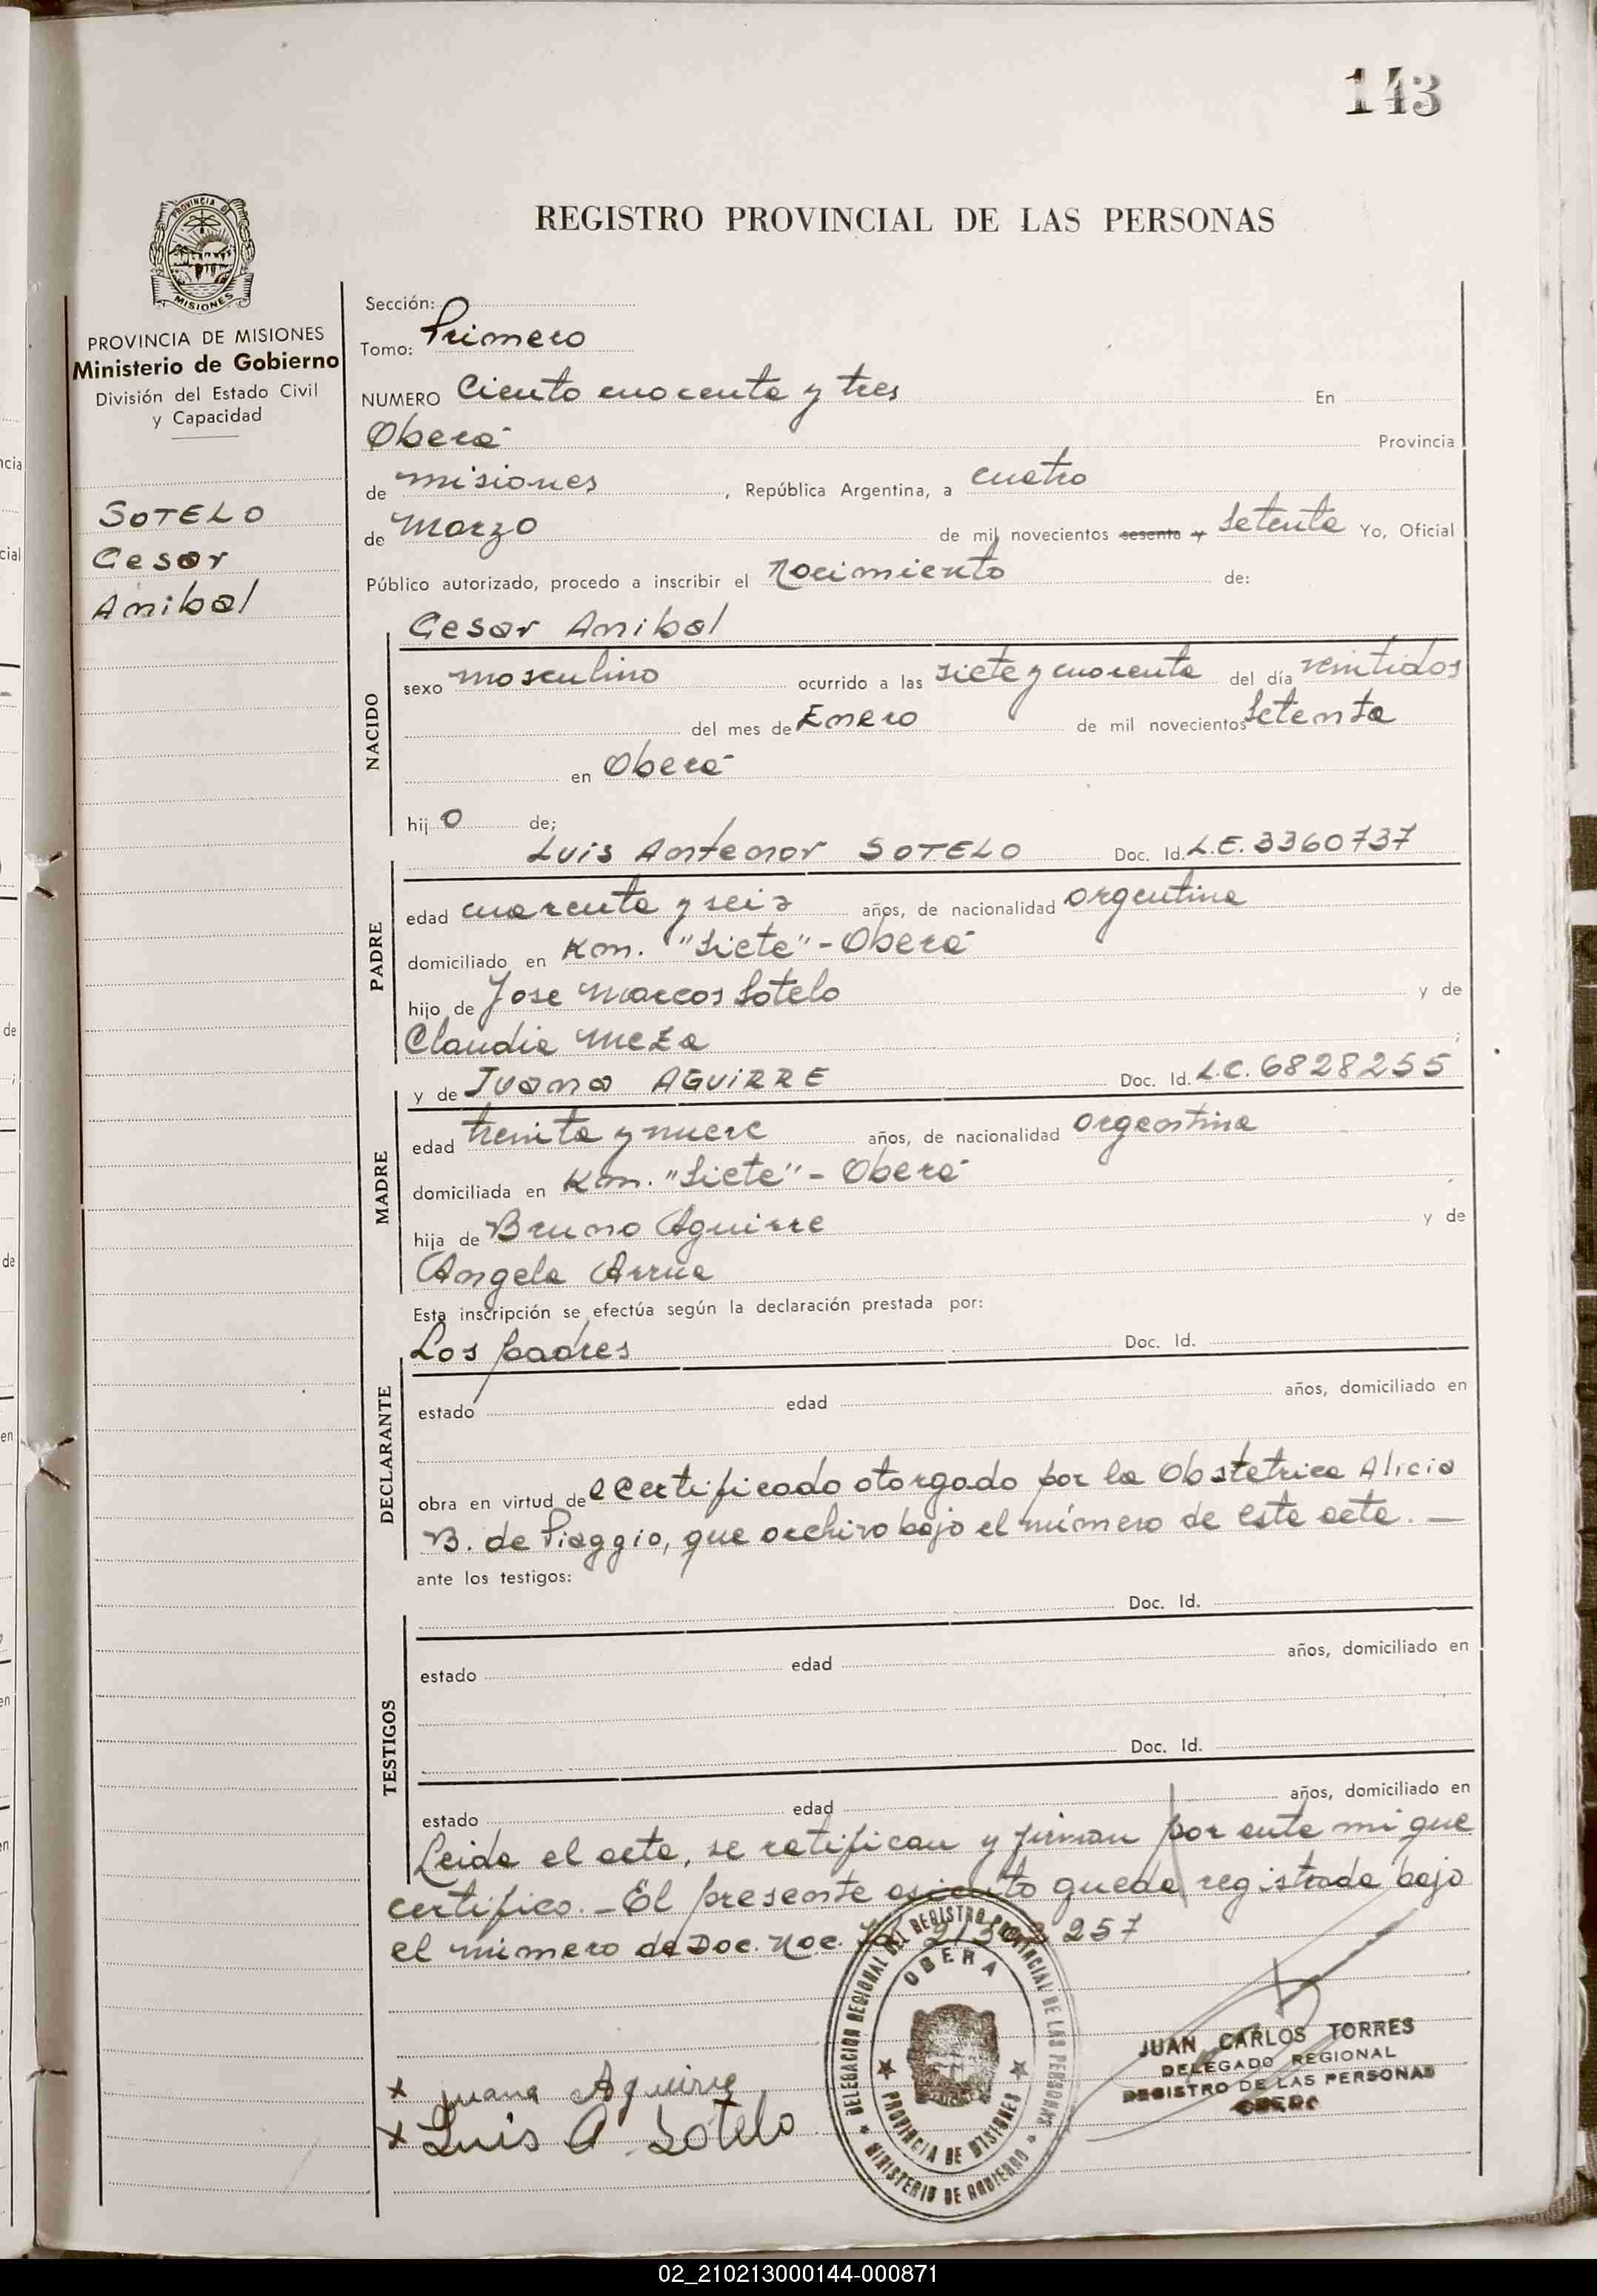 143
REGISTRO PROVINCIAL DE LAS PERSONAS
PROVINCIA DE
MISIONES
PROVINCIA DE MISIONES
Ministerio de Gobierno
División del Estado Civil
y Capacidad
SOTELO
Cesar
Anibal
Sección:
Tomo: Primero
NUMERO Ciento cuarenta y tres En
Oberá Provincia
de misiones, República Argentina, a cuatro
de Marzo de mil novecientos sesenta y Setenta Yo, Oficial
Público autorizado, procedo a inscribir el Nacimiento de:
Cesar Anibal
NACIDO
sexo masculino ocurrido a las siete y cuarenta del día veintidos
del mes de Enero de mil novecientos Setenta
en Oberá
hijo de;
Luis Antenor SOTELO Doc. Id. L.E. 3360737
PADRE
edad cuarenta y seis años, de nacionalidad argentina
domiciliado en Km. "Siete" - Oberá
hijo de Jose Marcos Sotelo y de
Claudia Meza;
y de Juana AGUIRRE Doc. Id. L.C. 6828255
MADRE
edad treinta y nueve años, de nacionalidad argentina
domiciliada en Km. "Siete" - Oberá
hija de Bruno Aguirre y de
Angela Arrua
Esta inscripción se efectúa según la declaración prestada por:
Los padres Doc. Id.
DECLARANTE
estado edad años, domiciliado en
obra en virtud de certificado otorgado por la Obstetrica Alicia
B. de Piaggio, que archivo bajo el número de esta acta. —
ante los testigos:
Doc. Id.
TESTIGOS
estado edad años, domiciliado en
Doc. Id.
estado edad años, domiciliado en
Leida el acta, se ratifican y firman por ante mi que
certifico. - El presente asiento queda registrada bajo
el número de Doc. Nac. Id. 257
DELEGACION REGIONAL DEL REGISTRO PROVINCIAL DE LAS PERSONAS
OBERA
PROVINCIA DE MISIONES
MINISTERIO DE GOBIERNO
x Juana Aguirre
x Luis A. Sotelo
JUAN CARLOS TORRES
DELEGADO REGIONAL
REGISTRO DE LAS PERSONAS
OBERA
02_210213000144-000871